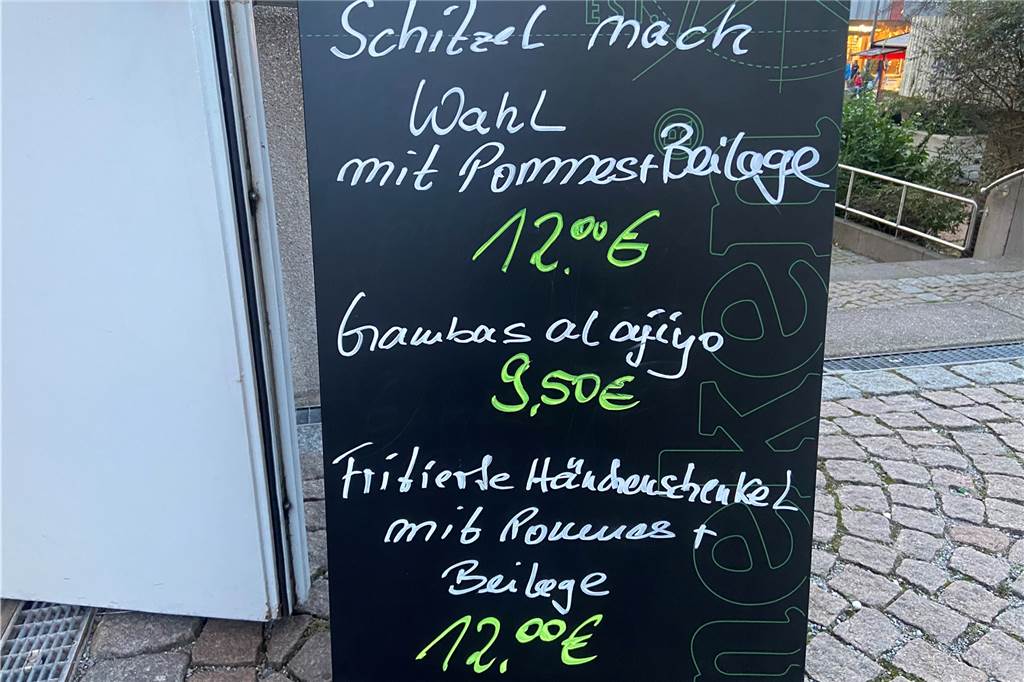 Schitzel nach
Wahl
mit Pommes + Beilage
12.00 €
Gambas al ajiyo
9,50 €
Fritierte Händchenschenkel
mit Pommes +
Beilage
12.00 €
EST.
neken